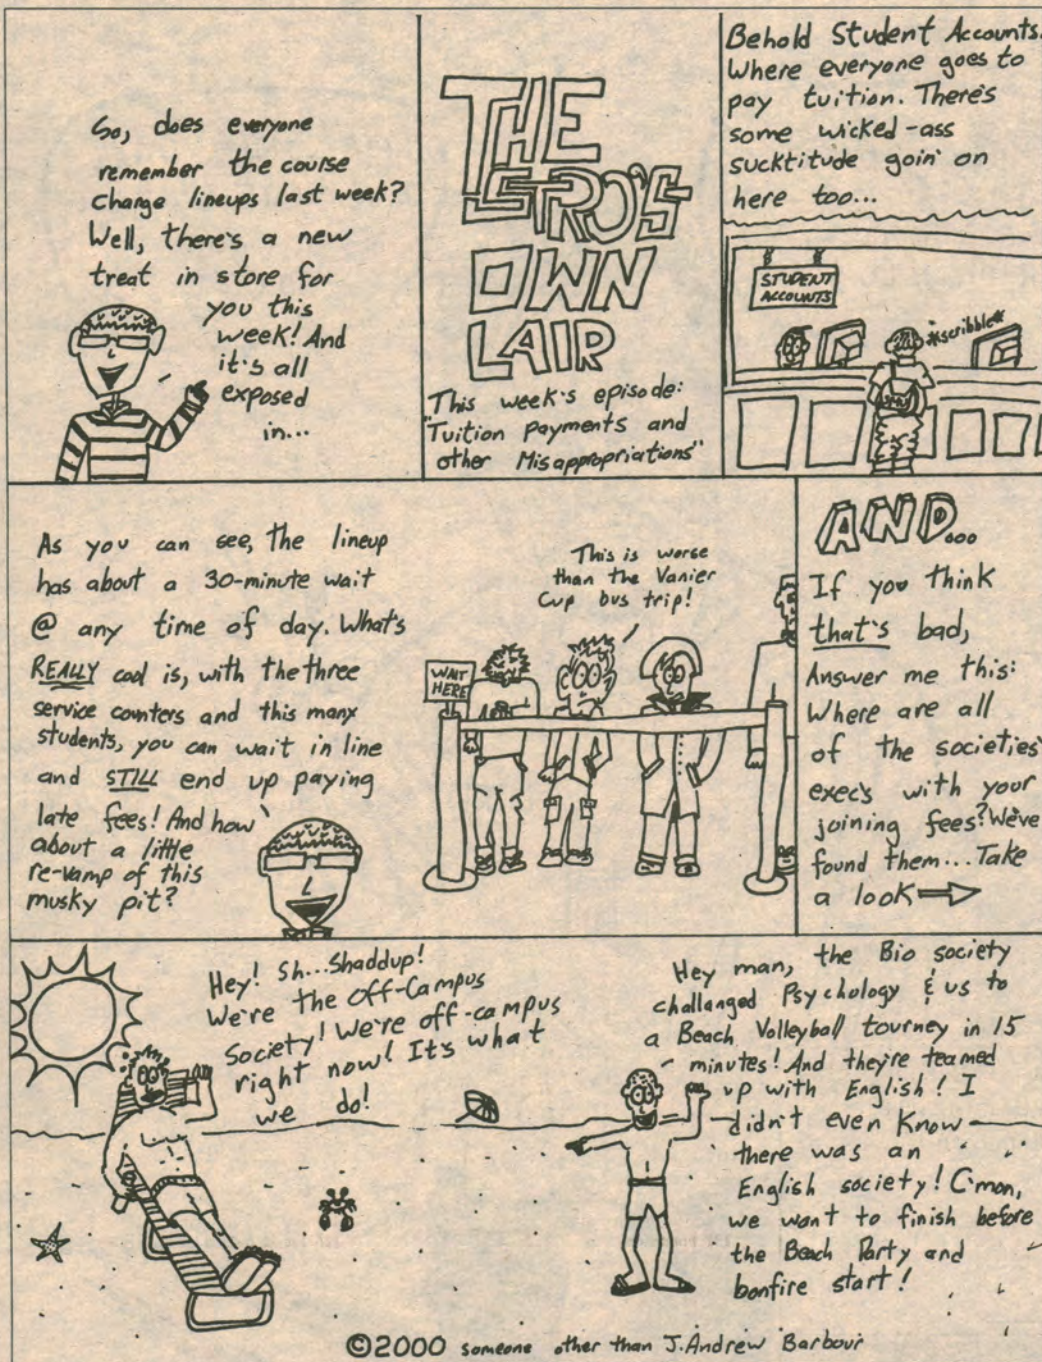 So, does everyone
remember the course
change lineups last week?
Well, there's a new
treat in store for
you this
week! And
it's all
exposed
in...
THE
STRO'S
OWN
LAIR
This week's episode:
"Tuition payments and
other Misappropriations"
Behold Student Accounts.
Where everyone goes to
pay tuition. There's
some wicked-ass
sucktitude goin' on
here too...
STUDENT
ACCOUNTS
*scribble*
As you can see, the lineup
has about a 30-minute wait
@ any time of day. What's
REALLY cool is, with the three
service counters and this many
students, you can wait in line
and STILL end up paying
late fees! And how
about a little
re-vamp of this
musky pit?
This is worse
than the Vanier
Cup bus trip!
WAIT
HERE
AND...
If you think
that's bad,
Answer me this:
Where are all
of the societies'
exec's with your
joining fees? We've
found them... Take
a look
Hey! Sh...Shaddup!
We're the Off-Campus
Society! We're off-campus
right now! It's what
we do!
Hey man, the Bio society
challanged Psychology & us to
a Beach Volleyball tourney in 15
minutes! And they're teamed
up with English! I
didn't even know
there was an
English society! C'mon,
we want to finish before
the Beach Party and
bonfire start!
©2000 someone other than J. Andrew Barbour